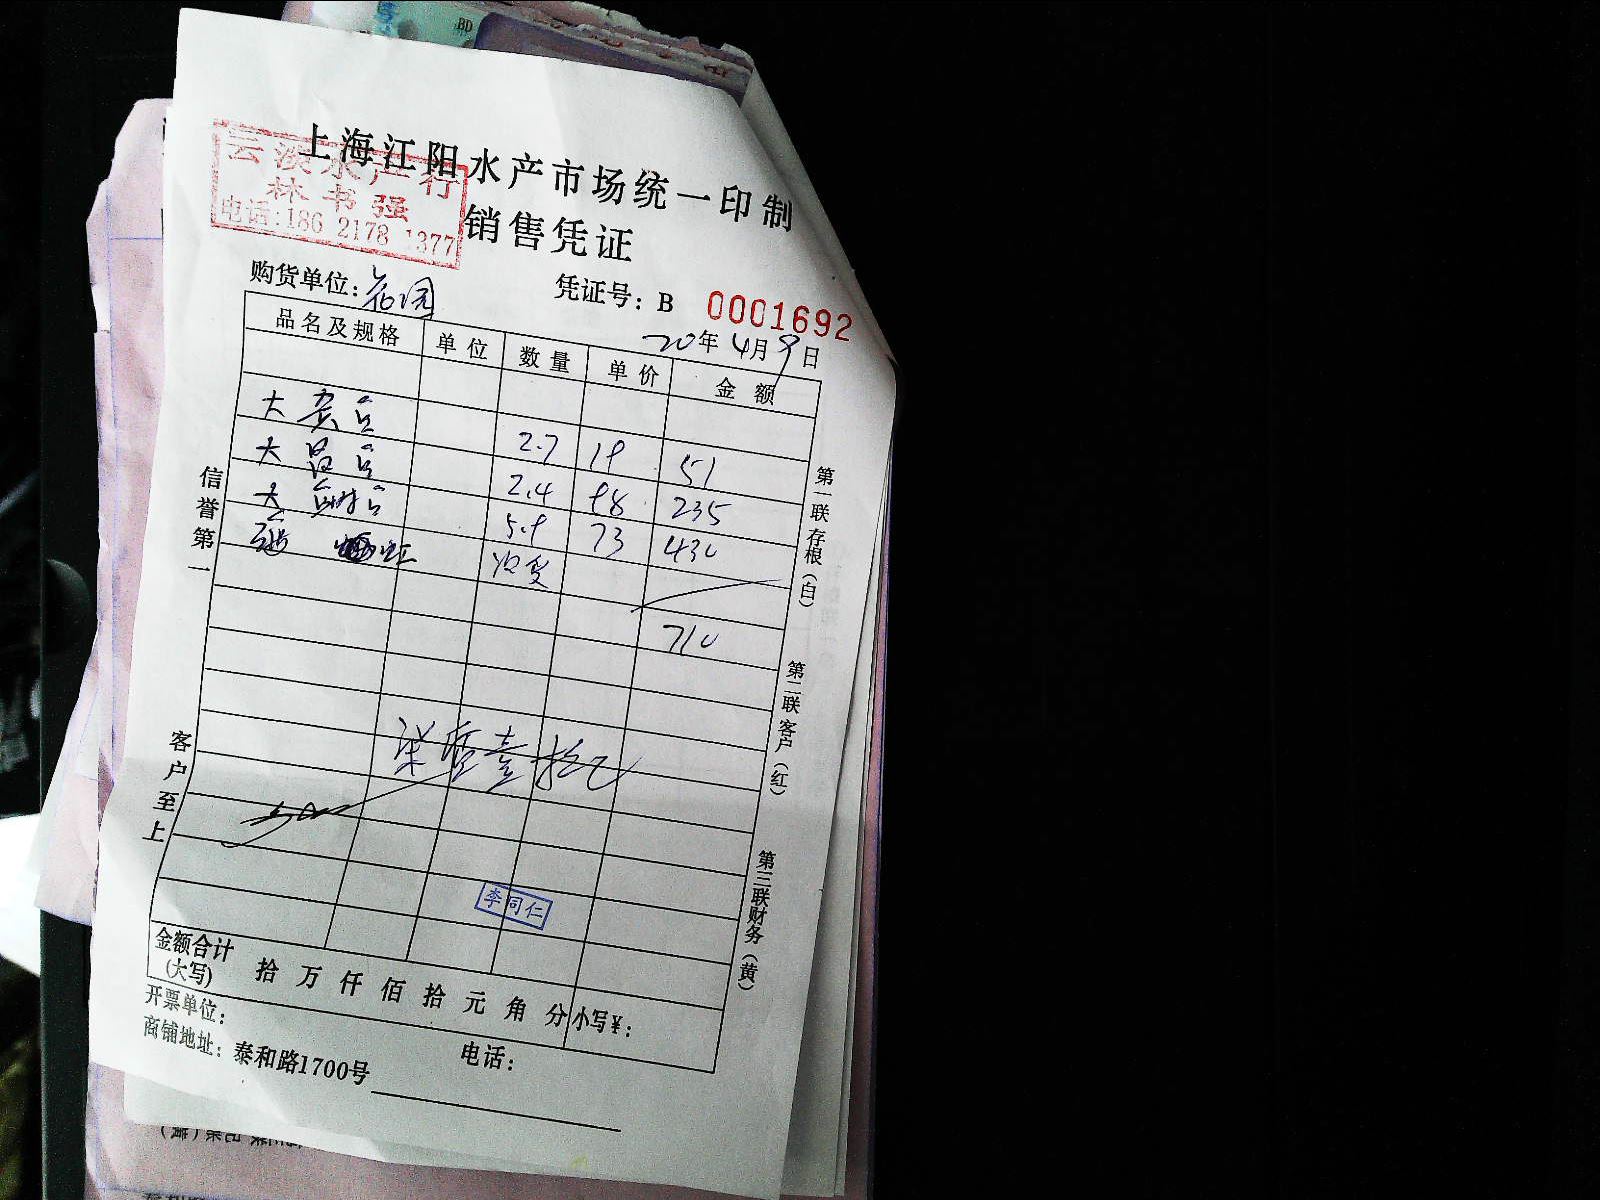 上海江阳水产市场统一印制
云 水产行
林书强
电话:186 2178 1377
销售凭证
购货单位: 花园
凭证号: B 0001692
20年4月9日
品名及规格 单位 数量 单价 金额
大 2.7 19 51
大 2.4 98 235
大 5.9 73 430
710
柒佰壹拾元
李同仁
金额合计(大写) 拾 万 仟 佰 拾 元 角 分 小写¥:
开票单位: 电话:
商铺地址: 泰和路1700号
信誉第一
客户至上
第一联存根(白)
第二联客户(红)
第三联财务(黄)